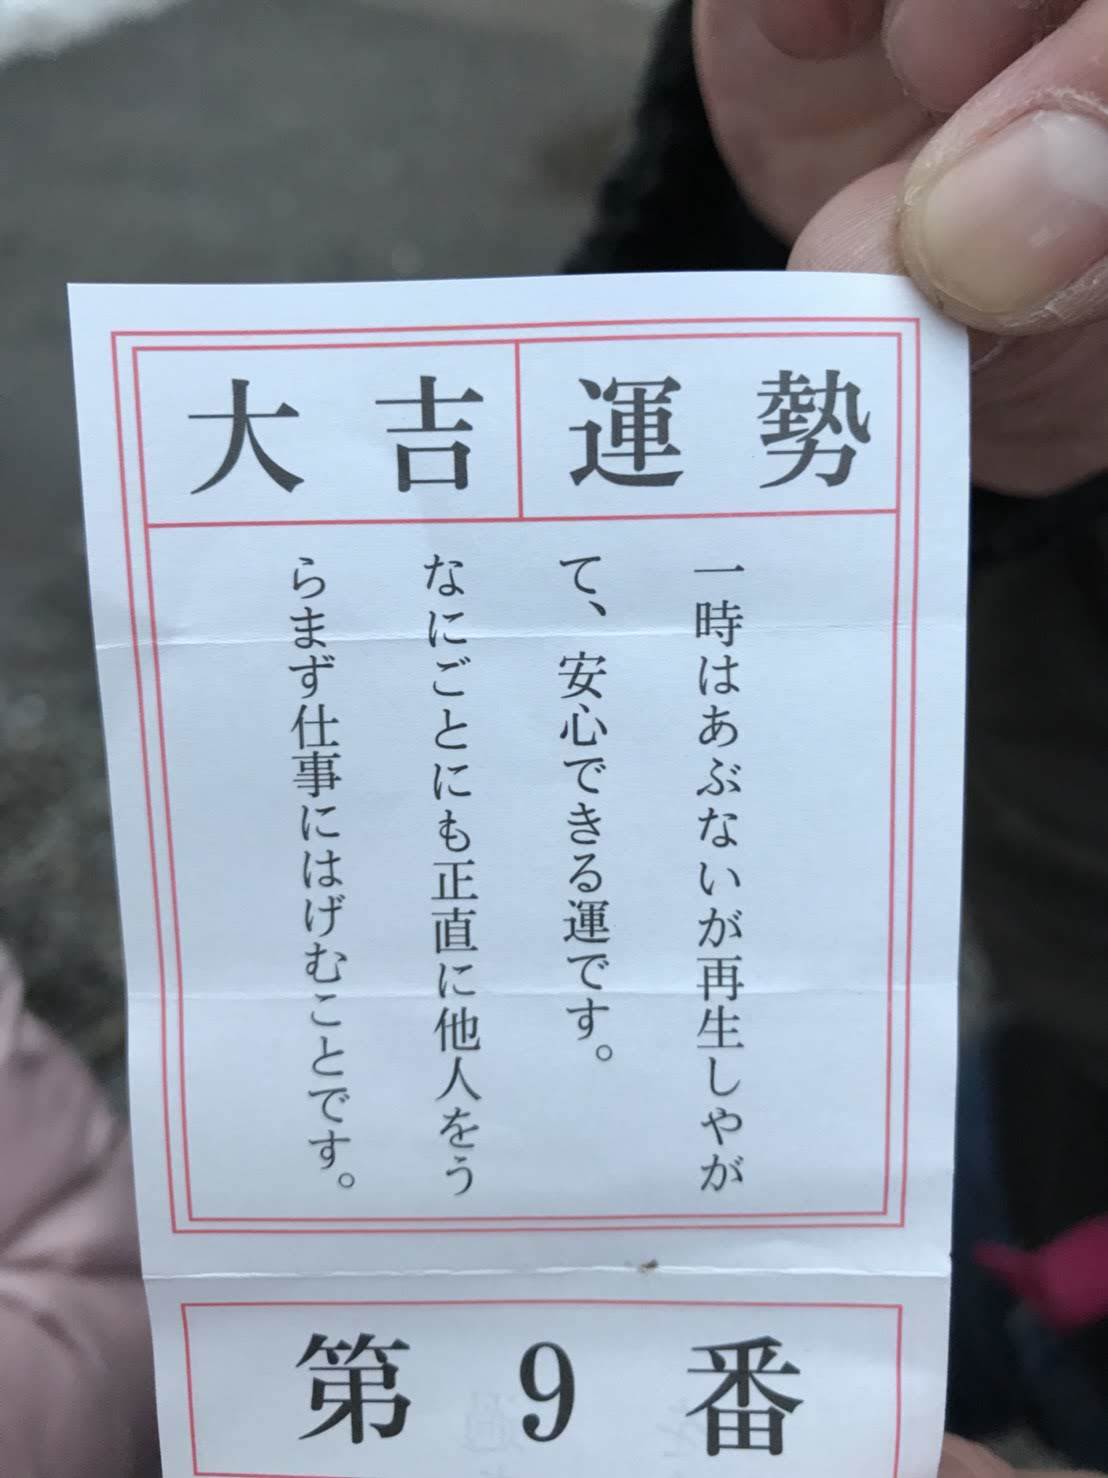 大吉運勢
一時はあぶないが再生しやが
て、安心できる運です。
なにごとにも正直に他人をう
らまず仕事にはげむことです。
第9番